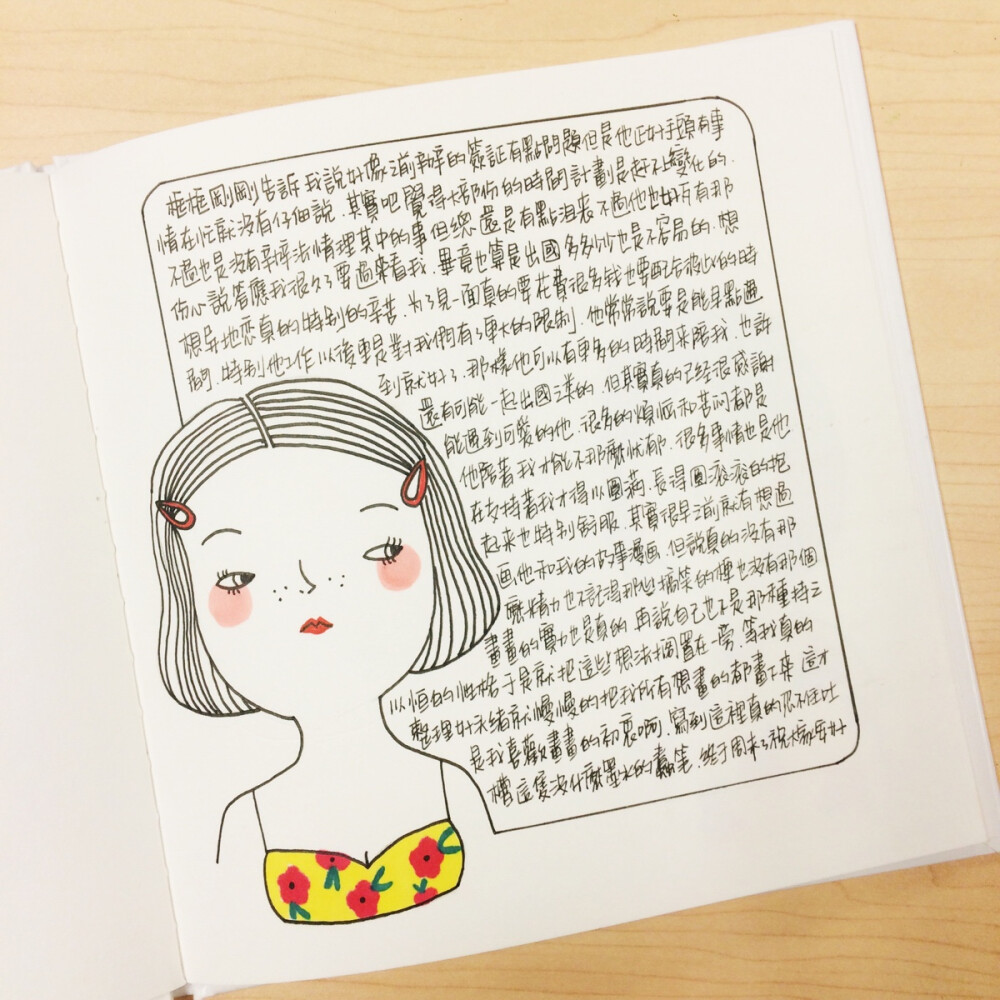 剛剛告訴我說好像之前辦的簽証有點問題但是他正好手頭有事
情在忙就沒有仔細說.其實吧覺得大部份的時間計劃是趕不上變化的.
不過也是沒有辦法情理其中的事但總還是有點沮喪不過他也好有那
份心說答應我很久了要過來看我.畢竟也算是出國多多少少也是不容易的.想
想异地恋真的特别的辛苦.为了見一面真的要花費很多钱也要配合彼此的時
間.特别他工作以後更是對我們有了更大的限制.他常常説要是能早點遇
到就好了.那樣他可以有更多的時間來陪我.也許
還有可能一起出國之类的.但其實真的已经很感謝
能遇到可愛的他.很多的煩恼和苦闷都是
他陪着我才能不那麽忧郁.很多事情也是他
在支持著我才得以圆满.長得圆滾滾的抱
起來也特别舒服.其實很早之前就有想過
画他和我的故事漫画.但說真的没有那
麽精力也不記得那些搞笑的梗也沒有那個
畫畫的實力也是真的.再說自己也不是那種持之
以恒的性格于是就把這些想法擱置在一旁.等我真的
整理好思緒就慢慢的把我所有想畫的都畫下來.這才
是我喜歡畫畫的初衷啊.寫到這裡真的忍不住吐
槽這隻沒什麽墨水的蠢筆.终于周末了祝大家安好